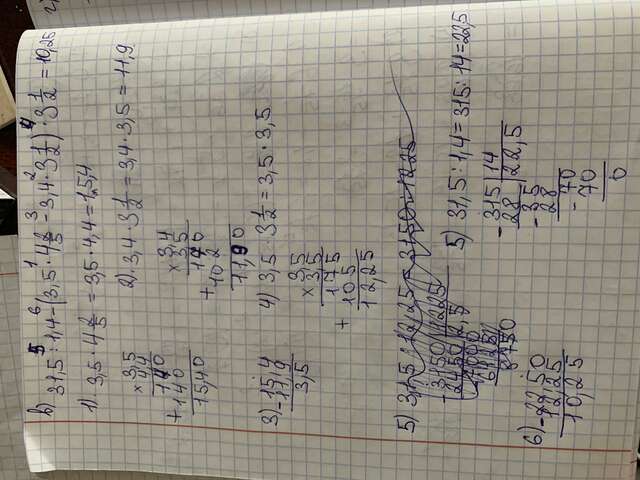 в) 31,5 : 1,4 - (3,5 · 4 2/5 - 3,4 · 3 1/2) · 3 1/2 = 10,25
1) 3,5 · 4 2/5 = 3,5 · 4,4 = 15,4
× 3,5
4,4
140
+ 140
15,40
2) 3,4 · 3 1/2 = 3,4 · 3,5 = 11,9
× 3,4
3,5
170
+ 102
11,90
3) - 15,4
11,9
3,5
4) 3,5 · 3 1/2 = 3,5 · 3,5
× 3,5
3,5
175
+ 105
12,25
5) 31,5 : 12,25 = 3150 : 1225
5) 31,5 : 1,4 = 315 : 14 = 22,5
- 315 | 14
28 | 22,5
- 35
28
- 70
70
0
6) - 22,50
12,25
10,25